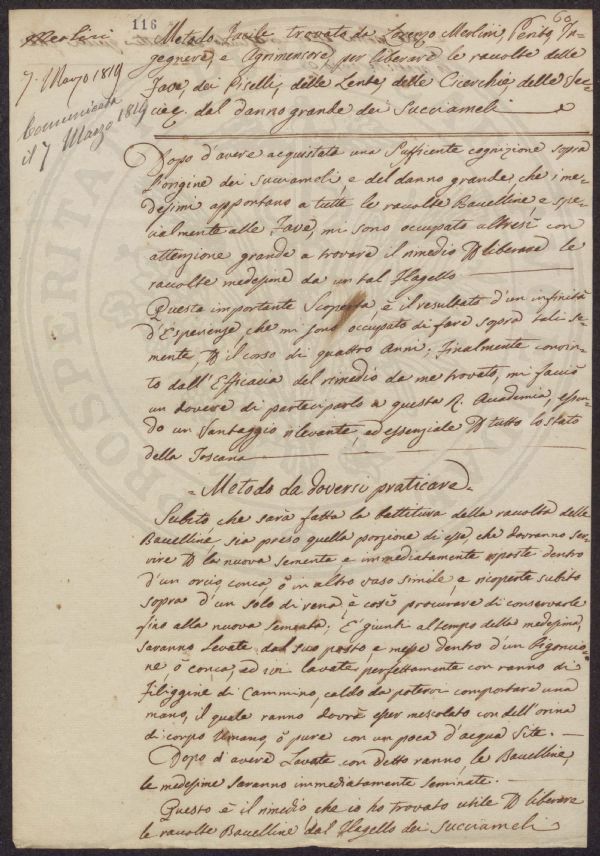 116
60
Merlini
7. Marzo 1819
Comunicata
il 7 Marzo 1819
Metodo Facile trovato da Lorenzo Merlini, Perito, In-
gegnere, e Agrimensore per liberare le raccolte delle
Fave, dei Piselli, delle Lenti, delle Cicerchie, delle
dal danno grande dei Succiameli
Dopo d'avere acquistata una Sufficente cognizione sopra
l'origine dei Succiameli, e del danno grande, che i me-
desimi apportano a tutte le raccolte Bacelline, e spe-
cialmente alle Fave, mi sono occupato altresì con
attenzione grande a trovare il rimedio p liberare le
raccolte medesime da un tal Flagello
Questa importante Scoperta è il resultato d'un infinità
d'Esperienze, che mi sono occupato di fare sopra tali se-
mente, p il corso di quattro Anni; Finalmente convin-
to dall'Efficacia del rimedio da me trovato, mi faccio
un dovere di parteciparlo a questa R. Accademia, essen-
do un Vantaggio rilevante, ed essenziale p tutto lo stato
della Toscana
= Metodo da doversi praticare =
Subito che sarà fatta la battitura della raccolta delle
Bacelline sia preso quella porzione di esse, che dovranno ser-
vire p la nuova sementa, e immediatamente riposte dentro
d'un orcio, conca, ò in altro vaso simile, e ricoperte subito
sopra d'un solo di rena, è così procurare di conservarle
fino alla nuova sementa; E' giunti al tempo della medesima,
saranno Levate dal suo posto, e messe dentro d'un Bigoncio-
ne, ò conca, ed ivi lavate perfettamente con ranno di
Filiggine di Cammino, caldo da potervi comportare una
mano, il quale ranno dovrà esser mescolato con dell'orina
di corpo Umano, ò pure con un poca d'acqua
Dopo d'avere Lavate con detto ranno, le Bacelline,
le medesime saranno immediatamente seminate.
Questo è il rimedio che io ho trovato utile p liberare
le raccolte Bacelline dal Flagello dei Succiameli
PROSPERITÀ